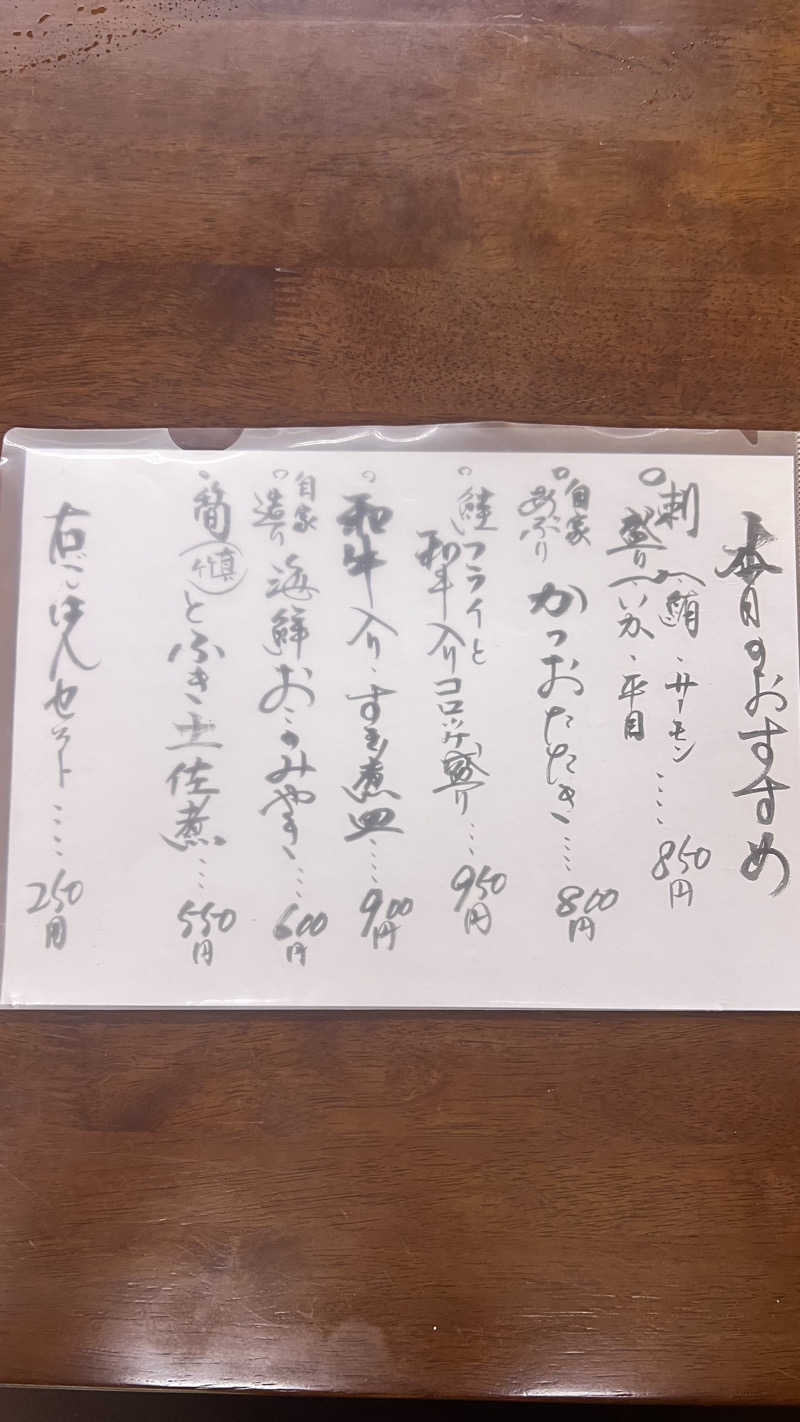 本日のおすすめ
○刺盛り(鮪、サーモン……850円
いか、平目
○自家あぶり かつおたたき……800円
○鮭フライと
和牛入りコロッケ盛り……950円
○和牛入り、すき煮皿……900円
○自家造り 海鮮おこのみやき、……600円
とふき土佐煮……550円
右ごはんセット……250円